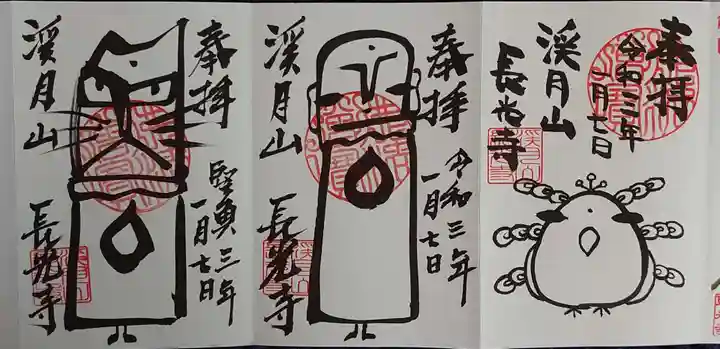 奉拝
令和三年
一月七日
渓月山
長光寺
奉拝
令和三年
一月七日
渓月山
長光寺
奉拝
三年
一月七日
渓月山
長光寺